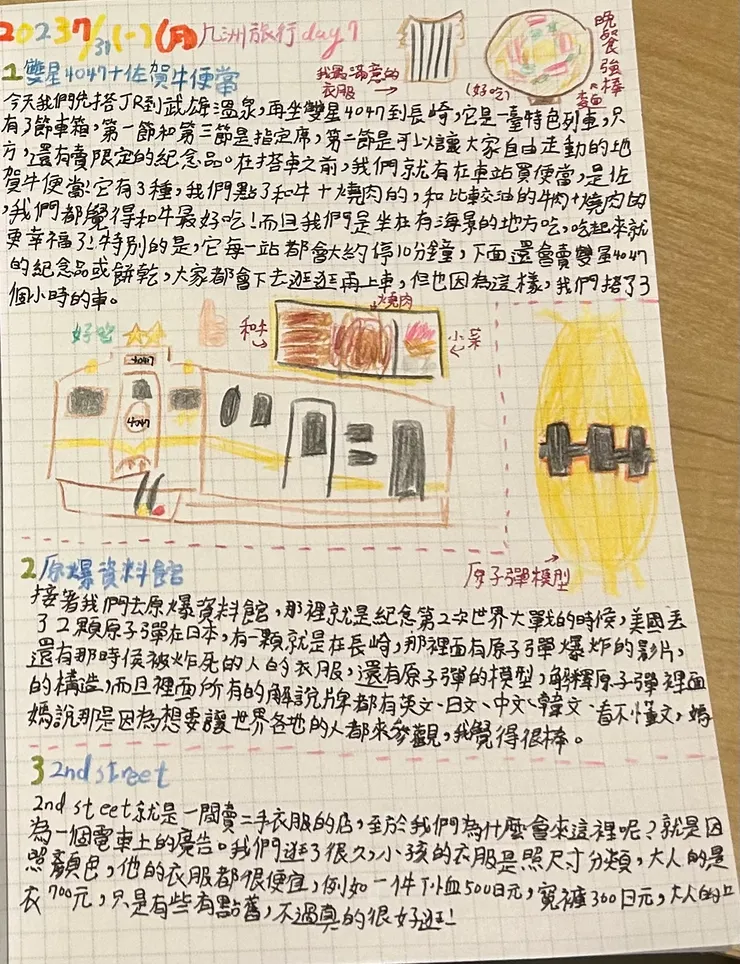 2023 7/31 (一) (月) 九洲旅行 day7
我最滿意的
衣服
(好吃)
晚餐 強棒
麵
1 雙星4047+佐賀牛便當
今天我們先搭JR到武雄溫泉,再坐雙星4047到長崎,它是一臺特色列車,只
有3節車箱,第一節和第三節是指定席,第二節是可以讓大家自由走動的地
方,還有賣限定的紀念品。在搭車之前,我們就有在車站買便當,是佐
賀牛便當!它有3種,我們點了和牛+燒肉的,和比較油的牛肉+燒肉的
,我們都覺得和牛最好吃!而且我們是坐在有海景的地方吃,吃起來就
更幸福了!特別的是,它每一站都會大約停10分鐘,下面還會賣雙星4047
的紀念品或餅乾,大家都會下去逛逛再上車,但也因為這樣,我們搭了3
個小時的車。
好吃
和牛
燒肉
小菜
4047
4047
原子彈模型
2 原爆資料館
接著我們去原爆資料館,那裡就是紀念第2次世界大戰的時候,美國丟
了2顆原子彈在日本,有一顆就是在長崎,那裡面有原子彈爆炸的影片,
還有那時候被炸死的人的衣服,還有原子彈的模型,解釋原子彈裡面
的構造,而且裡面所有的解說牌都有英文、日文、中文、韓文、看不懂文,媽
媽說那是因為想要讓世界各地的人都來參觀,我覺得很棒。
3 2nd street
2nd steet就是一間賣二手衣服的店,至於我們為什麼會來這裡呢?就是因
為一個電車上的廣告。我們逛了很久,小孩的衣服是照尺寸分類,大人的是
照顏色,他的衣服都很便宜,例如一件T恤500日元,寬褲300日元,大人的上
衣700元,只是有些有點舊,不過真的很好逛!